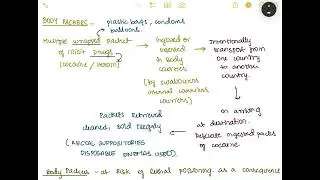 BODY PACKERS -
plastic bags, condoms
balloons.
Multiple wrapped packet
of illicit drugs
[cocaine / heroin]
Ingested or
inserted
in Body
cavities
[by swallowers
internal carriers
couriers]
Intentionally
transport from
one country
to another
country.
on arriving
at destination.
Defecate ingested packs
of cocaine
Packets retrieved
cleaned, sold illegally
( RECTAL SUPPOSITORIES
DISPOSABLE ENEMAS USED).
Body Packers - at risk of lethal poisoning. as a consequence